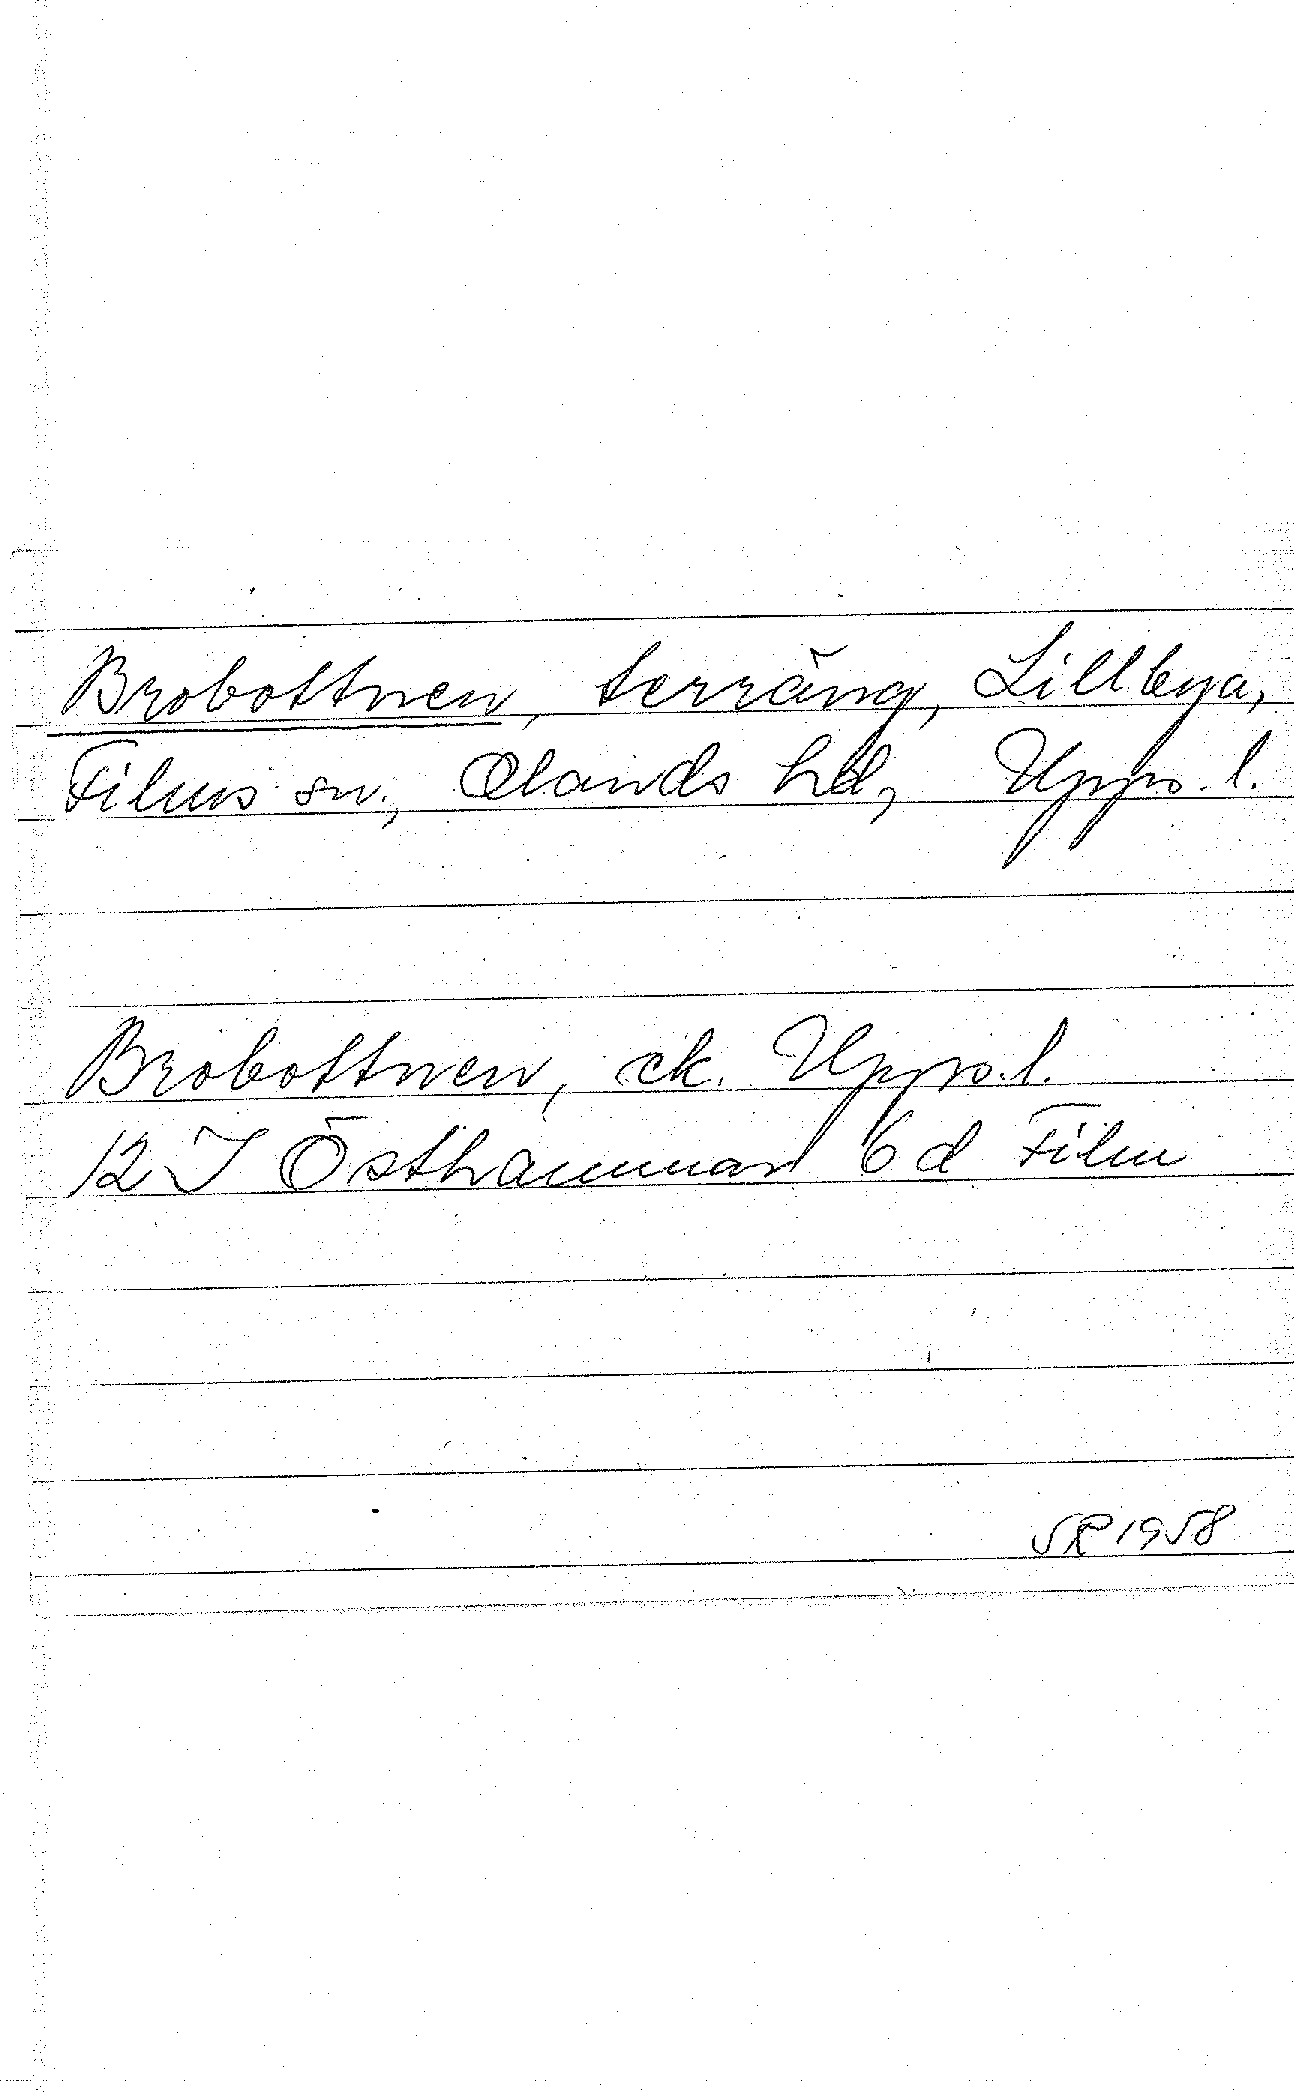 Brobottnen, terräng, Lillbya,
Films sn., Olands hd, Upps. l.
Brobottnen, ek. Upps. l.
12 I Östhammar 6 d Film
SR 1958